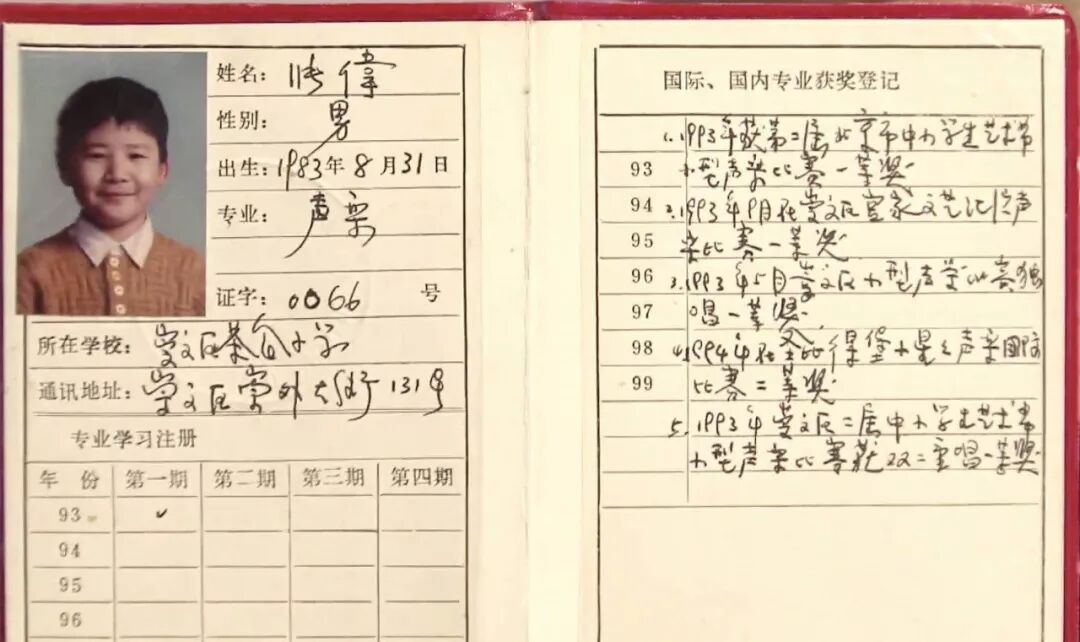 姓名：张偉
性别：男
出生：1983年8月31日
专业：声乐
证字：0066号
所在学校：崇文区茶食小学
通讯地址：崇文区崇外大街131号
专业学习注册
年份 第一期 第二期 第三期 第四期
93 ✓
94
95
96
国际、国内专业获奖登记
1.1993年获第二届北京市中小学生艺术节
93 小型声乐比赛一等奖
94 2.1993年9月在崇文区宫家文艺汇演声
95 乐比赛一等奖
96 3.1993年5月崇文区小型声乐比赛独
97 唱一等奖
98 4.1994年在圣彼得堡小星星声乐国际
99 比赛二等奖
5.1993年崇文区二届中小学生艺术节
小型声乐比赛获双二重唱一等奖